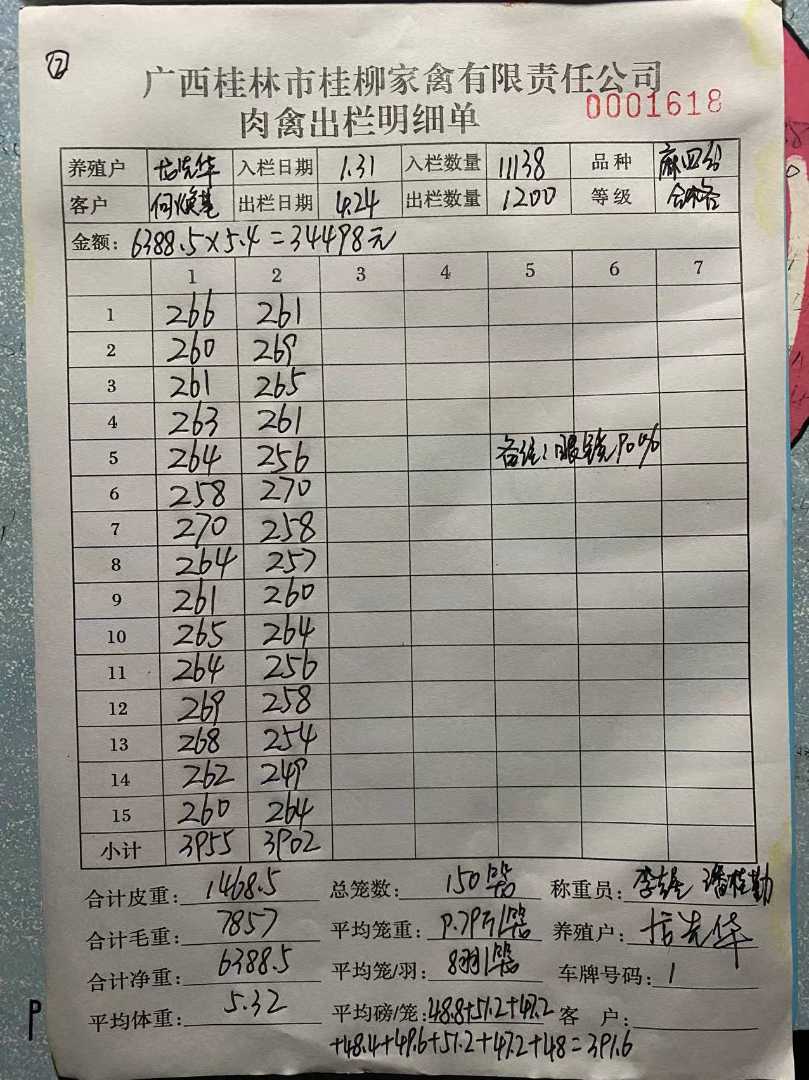 ⑫
广西桂林市桂柳家禽有限责任公司
肉禽出栏明细单 0001618
养殖户 华 入栏日期 1.31 入栏数量 11138 品种 麻
客户 何焕 出栏日期 4.24 出栏数量 1200 等级 合格
金额: 6388.5×5.4=34498元
1 2 3 4 5 6 7
1 266 261
2 260 269
3 261 265
4 263 261
5 264 256 备注:眼镜90%
6 258 270
7 270 258
8 264 257
9 261 260
10 265 264
11 264 256
12 269 258
13 268 254
14 262 249
15 260 264
小计 3955 3902
合计皮重: 1468.5 总笼数: 150笼 称重员: 李 潘桂勤
合计毛重: 7857 平均笼重: 9.79斤/笼 养殖户: 华
合计净重: 6388.5 平均笼/羽: 8羽/笼 车牌号码: 1
平均体重: 5.32 平均磅/笼: 48.8+51.2+47.2 客 户:
+48.4+49.6+51.2+47.2+48=391.6
P